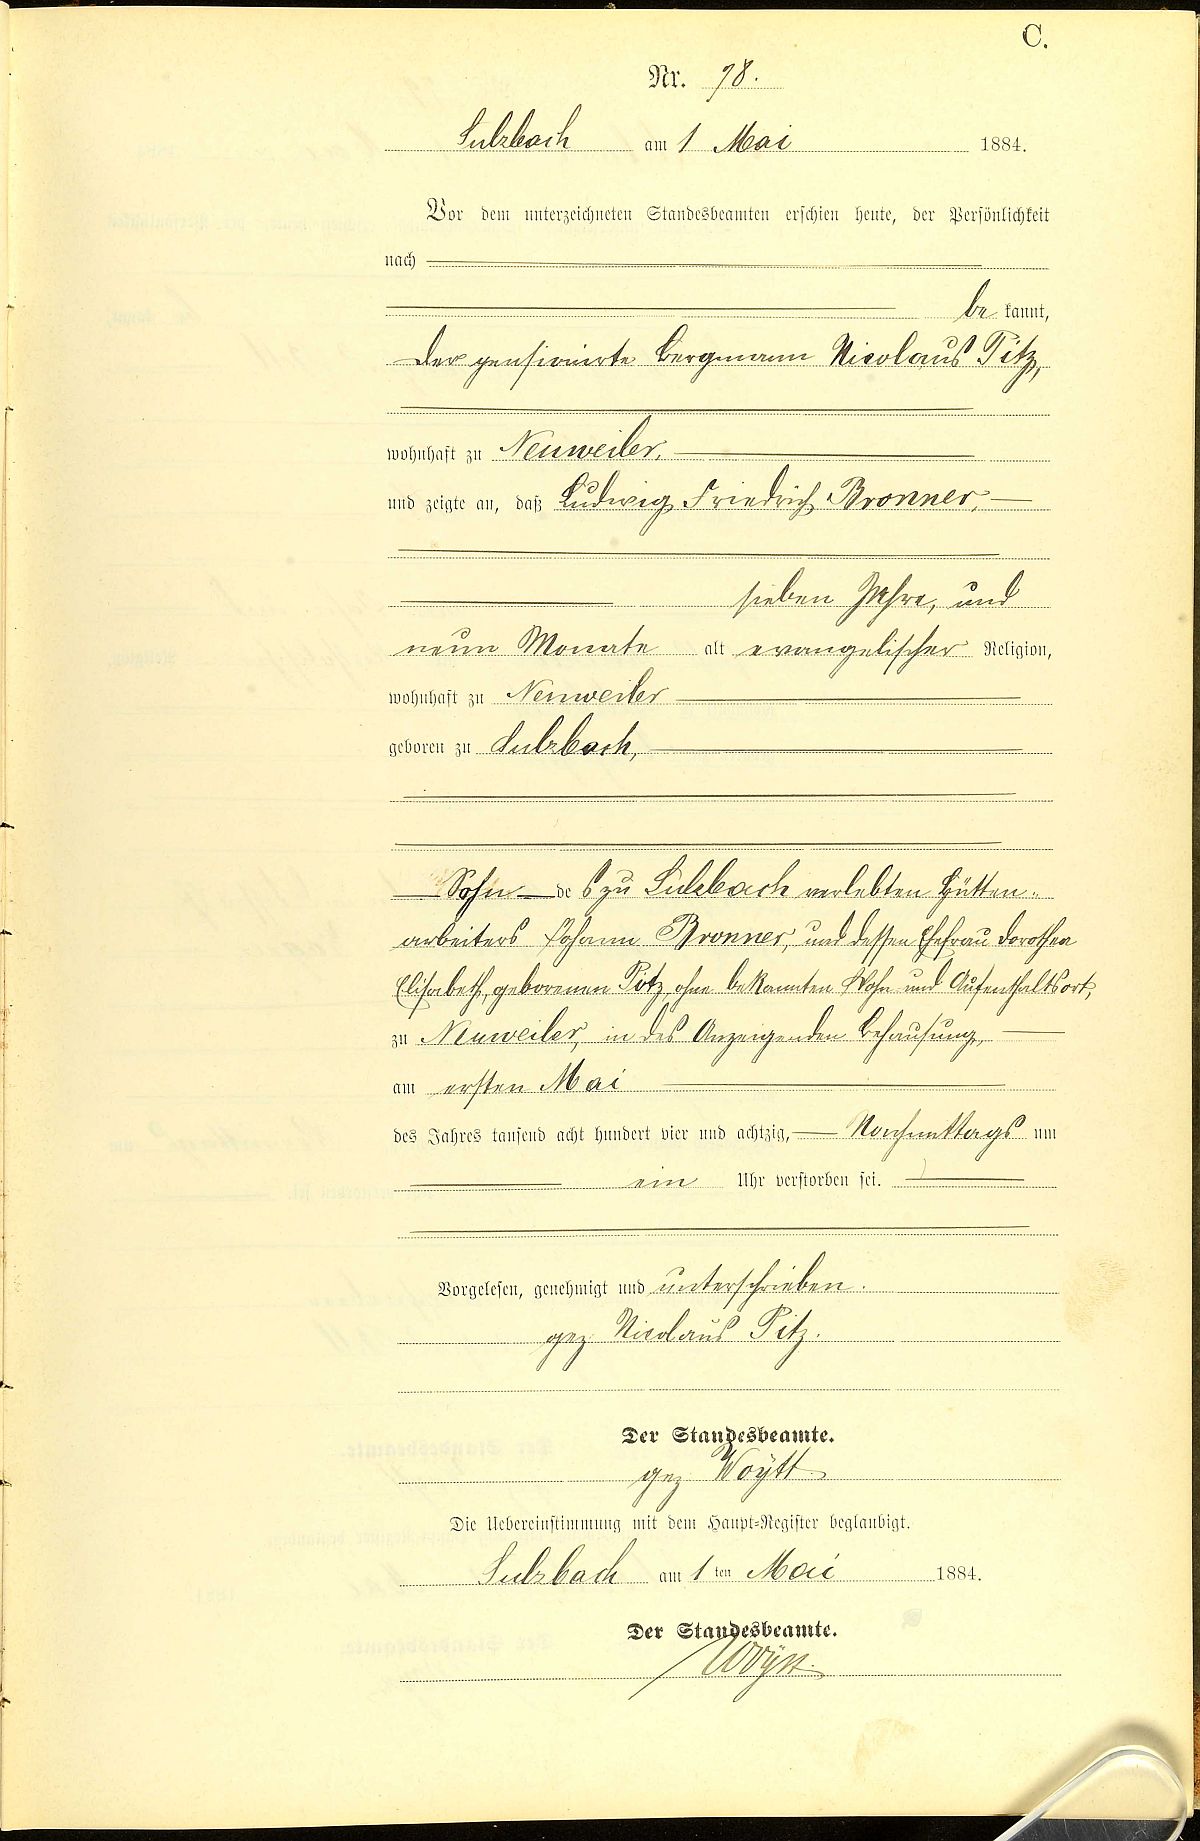 C.
Nr. 98.
Sulzbach am 1 Mai 1884.
Vor dem unterzeichneten Standesbeamten erschien heute, der Persönlichkeit
nach
be kannt,
der pensionirte Bergmann Nicolaus Pitz,
wohnhaft zu Neuweiler,
und zeigte an, daß Ludwig Friedrich Bronner,
sieben Jahre, und
neun Monate alt evangelischer Religion,
wohnhaft zu Neuweiler
geboren zu Sulzbach,
Sohn des zu Sulzbach verlebten Hütten-
arbeiters Johann Bronner, und dessen Ehefrau Dorothea
Elisabeth, geborenen Pitz, ohne bekannten Wohn- und Aufenthaltsort,
zu Neuweiler, in des Anzeigenden Behausung,
am ersten Mai
des Jahres tausend acht hundert vier und achtzig, Nachmittags um
ein Uhr verstorben sei.
Vorgelesen, genehmigt und unterschrieben.
gez Nicolaus Pitz.
Der Standesbeamte.
gez Woytt
Die Uebereinstimmung mit dem Haupt-Register beglaubigt.
Sulzbach am 1ten Mai 1884.
Der Standesbeamte.
Woytt.